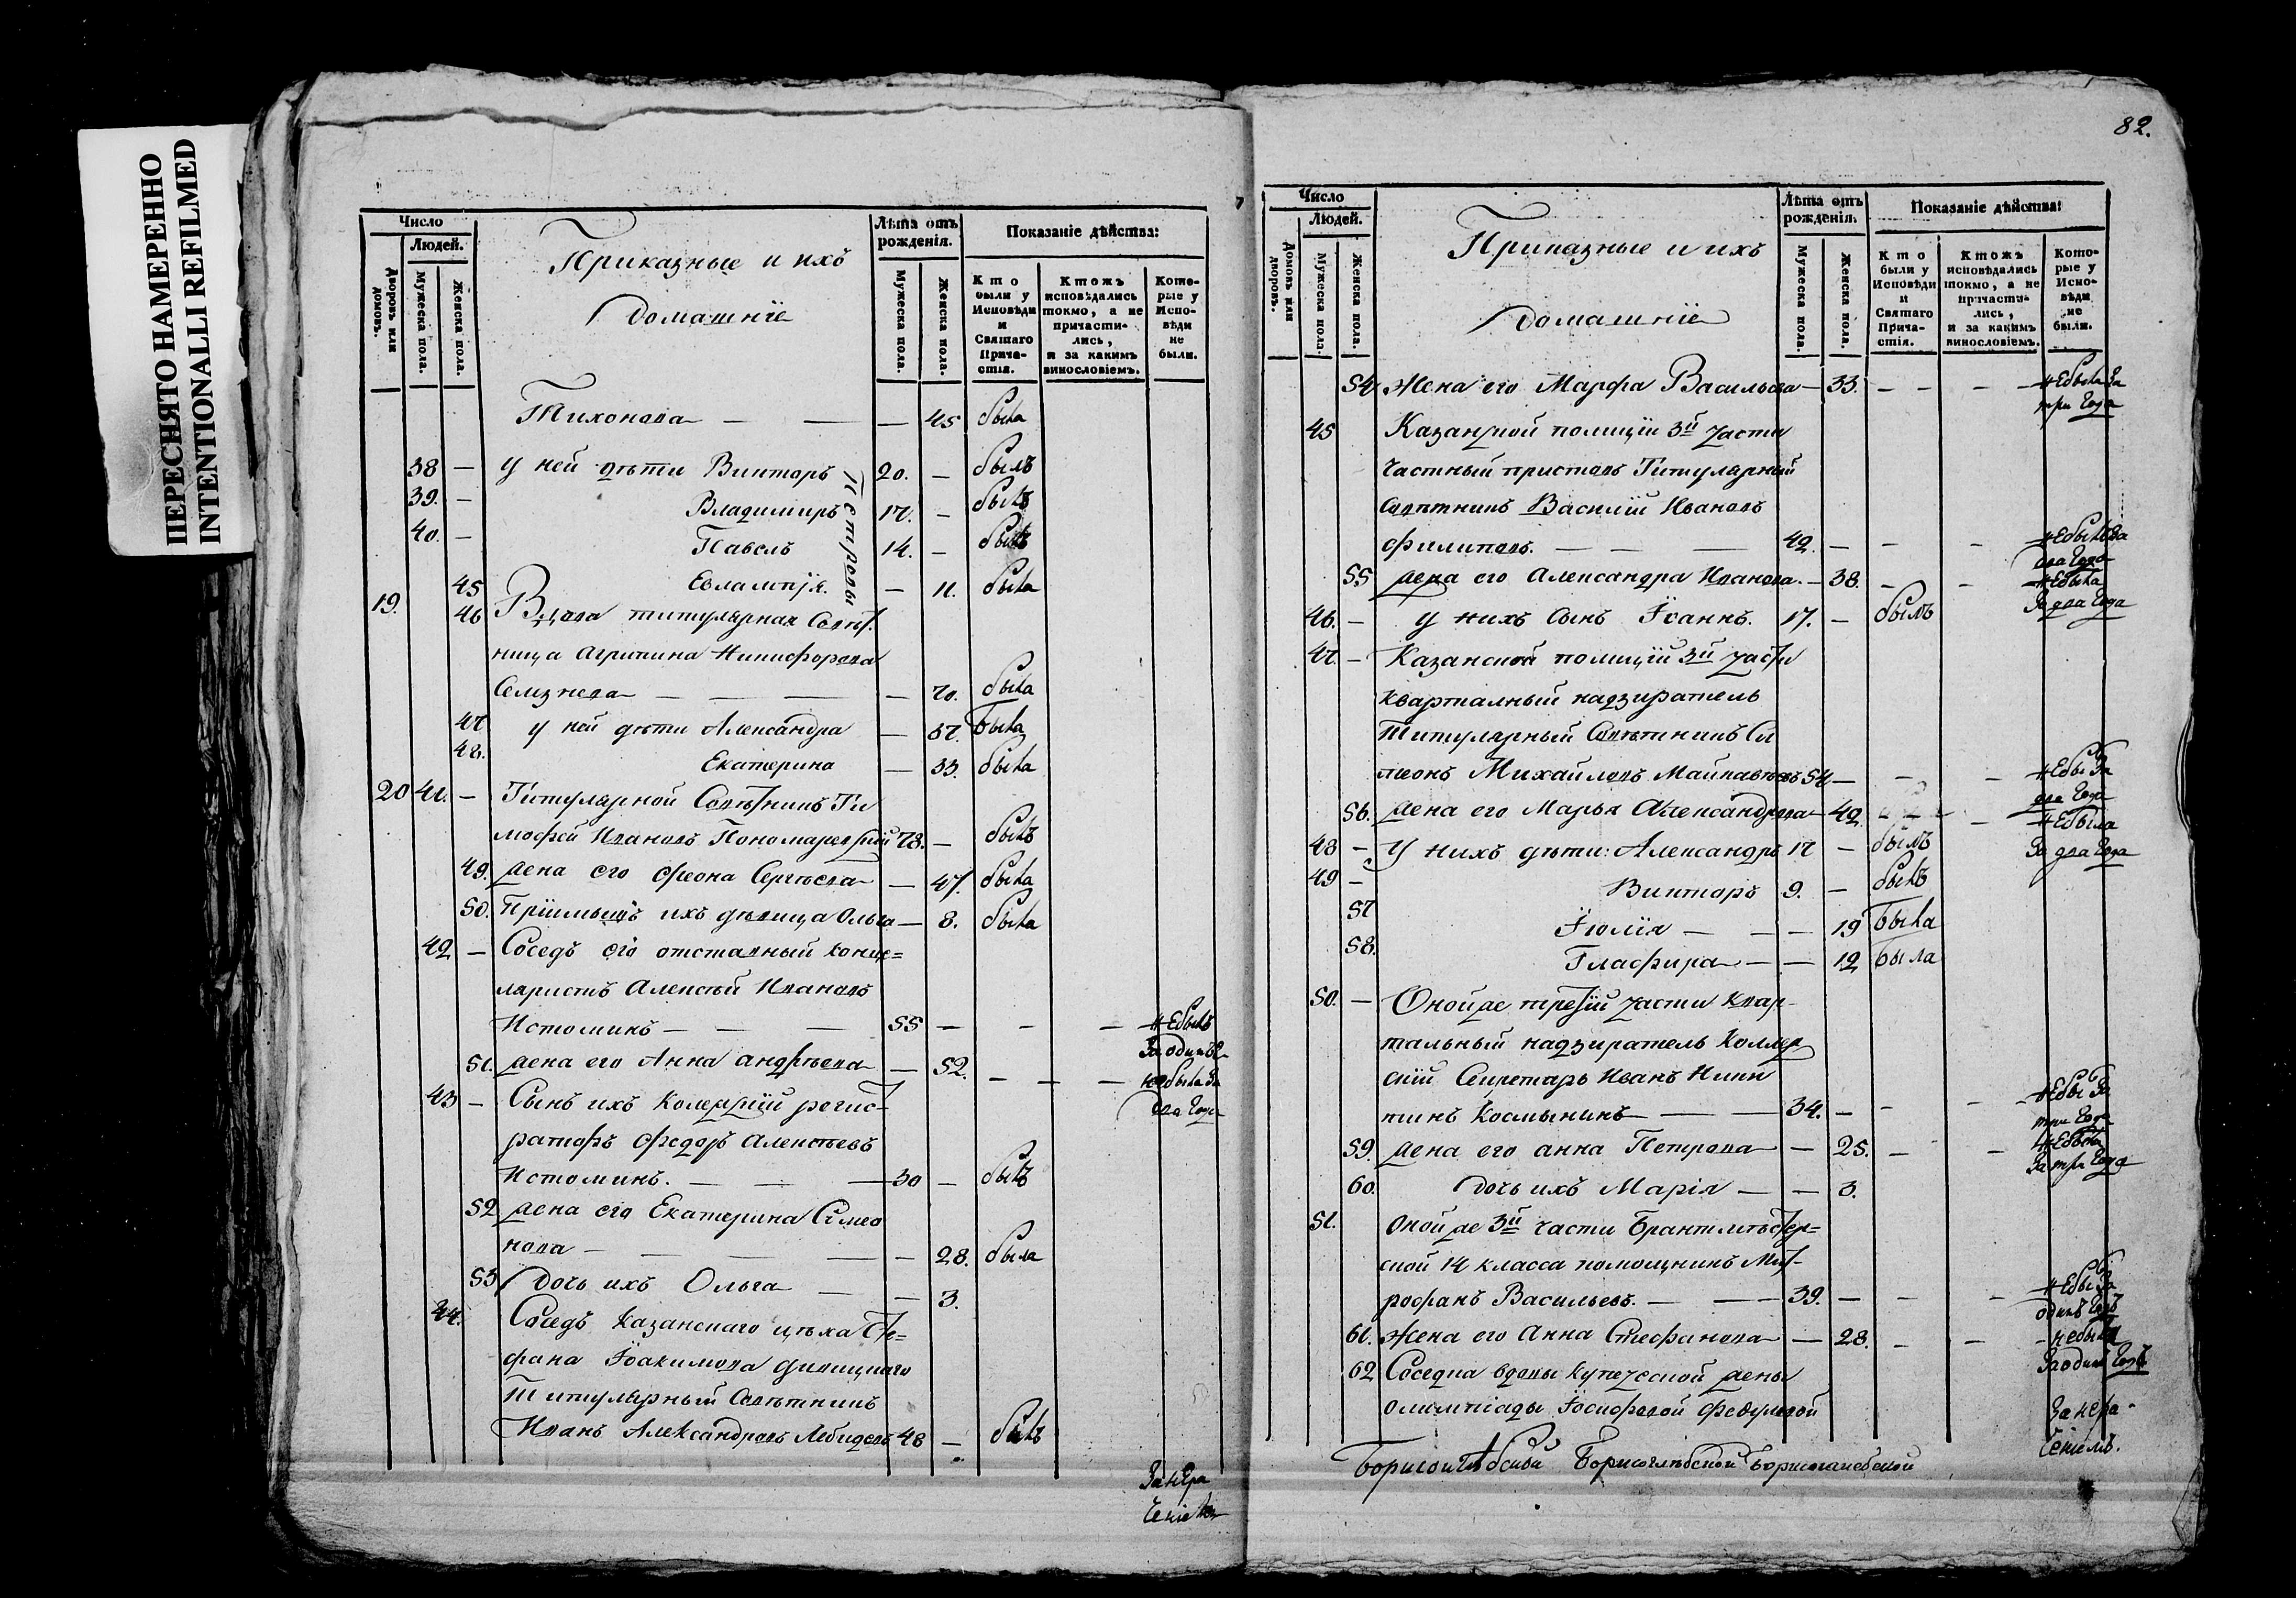 ПЕРЕСНЯТО НАМЕРЕННО
INTENTIONALLI REFILMED
Число
Людей.
Дворовъ или домовъ.
Мужеска пола.
Женска пола.
Приказные и ихъ
Домашніе
Лѣта отъ рожденія.
Мужеска пола.
Женска пола.
Показаніе дѣйства:
Кто были у Исповѣди и Святаго Прича-стія.
Ктожъ исповѣдались токмо, а не причасти-лись, и за какимъ винословіемъ.
Кото-рые у Испо-вѣди не были.
Тихонова — — — 45 была
38 — у ней дѣти Викторъ 20. — былъ
39. — Владимиръ 17. — былъ
40. — Павелъ 14. — былъ
Петровы
45 Евлампія. — 11. была
19. 46 Вдова титулярная Совѣт.
ница Агрипина Никифорова
— — — 70. была
47 у ней дѣти Александра — 37. Была
48. Екатерина — 33. была
20 41. — Титулярной Совѣтникъ Ти
мофей Ивановъ Пономаревскій 78. — былъ
49. жена его Сергѣева — 47. была
50. Пріимышъ ихъ дѣвица Ольга — 8. была
42 — Соседъ его отставный канце=
ляристъ Алексѣй Ивановъ
Истоминъ — — — 55 — — — не былъ
за одинъ
51. жена его Анна Андрѣева — 52. — — — не была за
два года
43 — Сынъ ихъ Колежскій регис-
раторъ Федоръ Алексѣевъ
Истоминъ. — — — 30 — былъ
52 жена его Екатерина Симео
нова — — — — 28. была
53 Дочь ихъ Ольга — — 3.
44. Соседъ Казанскаго цѣха Сте=
фана Іоакимова
Титулярный Совѣтникъ
Иванъ Александровъ Лебедевъ 48 — былъ
За нера
ченіемъ
82.
Число
Людей.
Домовъ или дворовъ.
Мужеска пола.
Женска пола.
Приказные и ихъ
Домашніе
Лѣта отъ рожденія.
Мужеска пола.
Женска пола.
Показаніе дѣйства:
Кто были у Исповѣди и Святаго Прича-стія.
Ктожъ исповѣдались токмо, а не причасти-лись, и за какимъ винословіемъ.
Кото-рые у Испо-вѣди не были.
54 Жена его Марфа Васильева — 33. — — — — не была за
три года
45 Казанской полиціи 3й части
частный приставъ Титулярный
Совѣтникъ Василій Ивановъ
Филиповъ. — — — 42. — — — не былъ за
два года
55 жена его Александра Иванова. — 38. — — не была
за два года
46. — у нихъ сынъ Іоаннъ. 17. — былъ
47. — Казанской полиціи 3й части
квартальный надзиратель
Титулярный Совѣтникъ Си
меонъ Михайловъ 54 — — — не бы за
два года
56. жена его Марья Александрова — 42 — — — не была
за два года
48 — у нихъ дѣти: Александръ 17 — былъ
49 — Викторъ 9. — былъ
57 Іюлія — — — 19 Была
58. Глафира — — 12 Была
50. — Онойже третій части квар-
тальный надзиратель Коллеж
скій Секретарь Иванъ Ники
тинъ Космынинъ — — 34. — — — не бы за
три года
59 жена его анна Петрова — 25. — — не была
за три года
60. Дочь ихъ Марія — — 3.
51. Оной же 3й части Брантмейстер=
ской 14 класса помощникъ Мит-
рофанъ Васильевъ. — — — 39. — — — не бы за
одинъ годъ
61. Жена его Анна Стефанова — 28. — — — не была
за одинъ годъ
62 Соседка вдовы купеческой жены
Олимпіады Іосифовой Федуловой
За нера-
ченіемъ.
Борисоглѣбской Борисоглѣбской Борисоглебской